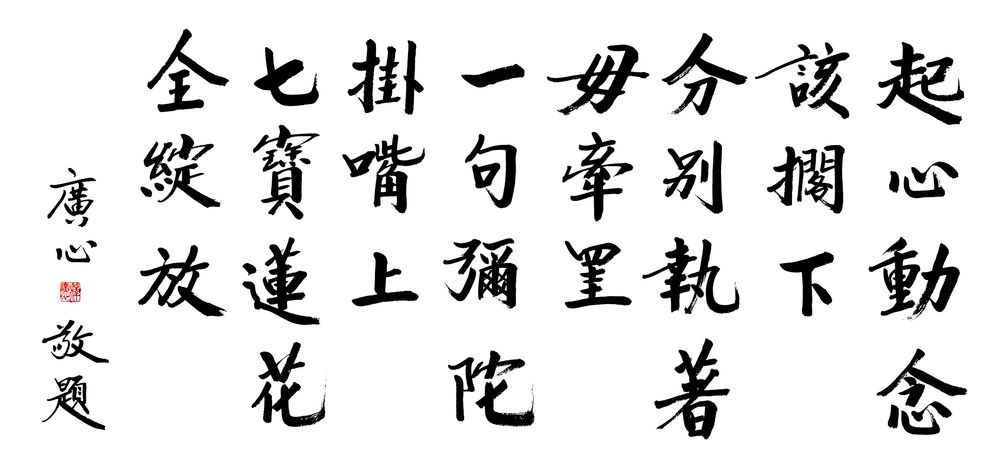 起心動念
該擱下
分別執著
毋牽罣
一句彌陀
掛嘴上
七寶蓮花
全綻放
廣心敬題